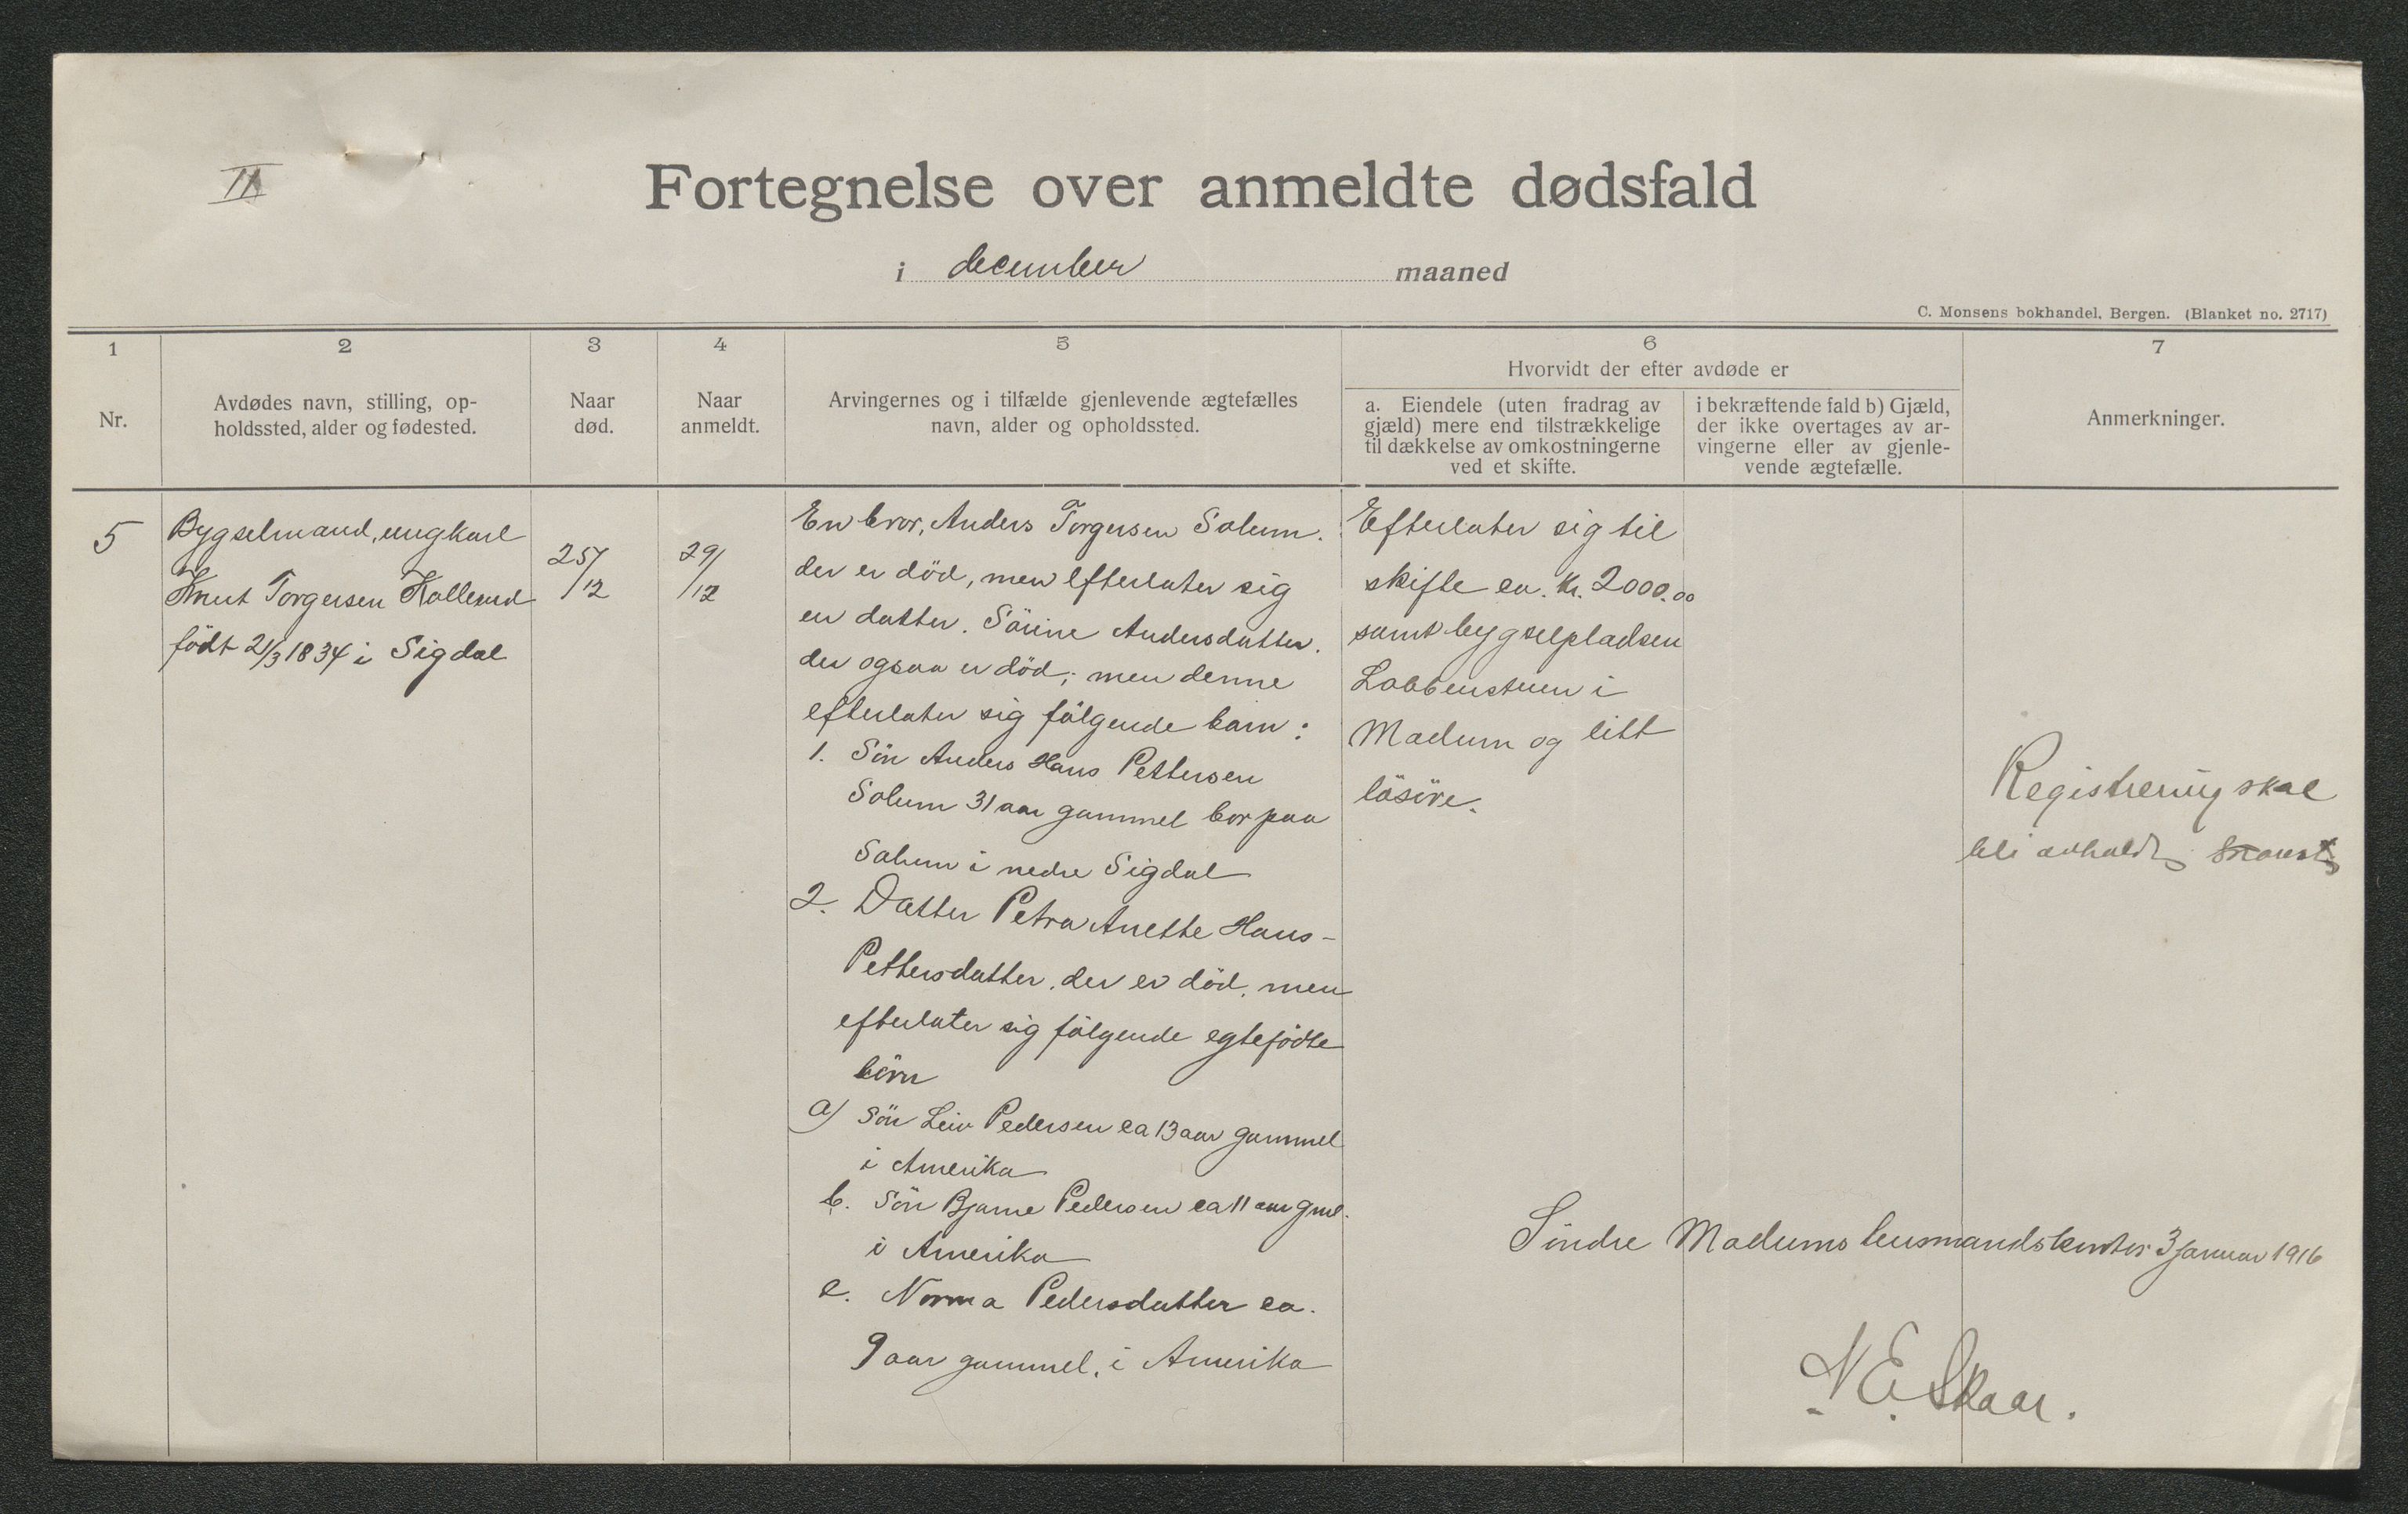 II
Fortegnelse over anmeldte dødsfald
i december maaned
C. Monsens bokhandel, Bergen. (Blanket no. 2717)
1
Nr.
2
Avdødes navn, stilling, op-
holdssted, alder og fødested.
3
Naar
død.
4
Naar
anmeldt.
5
Arvingernes og i tilfælde gjenlevende ægtefælles
navn, alder og opholdssted.
6
Hvorvidt der efter avdøde er
a. Eiendele (uten fradrag av
gjæld) mere end tilstrækkelige
til dækkelse av omkostningerne
ved et skifte.
i bekræftende fald b) Gjæld,
der ikke overtages av ar-
vingerne eller av gjenle-
vende ægtefælle.
7
Anmerkninger.
5
Bygselmand, ungkarl
Knut Torgersen Kollerud
født 21/3 1834 i Sigdal
25/12
29/12
En bror, Anders Torgersen Solum.
der er død, men efterlater sig
en datter. Sörine Andersdatter.
der ogsaa er död; men denne
efterlater sig fölgende barn:
1. Sön Anders Hans Pettersen
Solum 31 aar gammel bor paa
Solum i nedre Sigdal
2. Datter Petra Anette Hans-
Pettersdatter. der er död, men
efterlater sig fölgende egtefödte
börn
a) Sön Leiv Pedersen ca 13 aar gammel
i Amerika
b. Sön Bjarne Pedersen ca 11 aar gml.
i Amerika
c. Norma Pedersdatter ca.
9 aar gammel. i Amerika
Efterlater sig til
skifte ca. kr. 2000.00
samt bygselpladsen
Lobbenstuen i
Modum og litt
lösöre.
Registrering skal
bli avholdt
Söndre Modums lensmandskontor 3 januar 1916
N. E. Skaar.